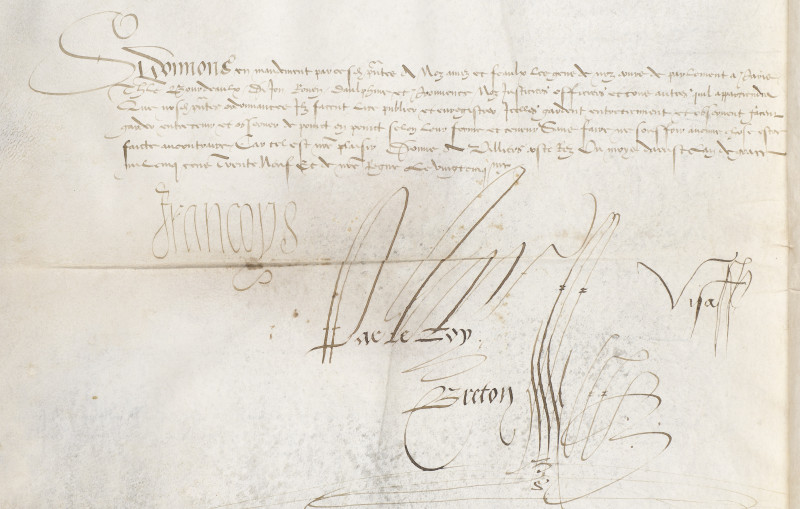 Si Donnons en mandement par ces presentes A Noz amez et feaulx les gens de noz cours de parlement a Paris
Thle Bourdeaulx Dijon Rouen Daulphine et Provence Noz Justiciers officiers et tous autres quil appartiendra
Que nosd presentes ordonnances Ilz facent lire publier et enregistrer Icelles gardent entretiennent et observent facent
garder entretenir et observer de point en point selon leur forme et teneur Sans faire ne souffrir aucune chose estre
faicte au contraire Car tel est nre plaisir Donne A Villiers coste Rez Ou moys daoust Lan de grace
mil cens Trente Neuf Et de nre Regne Le vingt
Francoys
Visa
Par le Roy
Breton